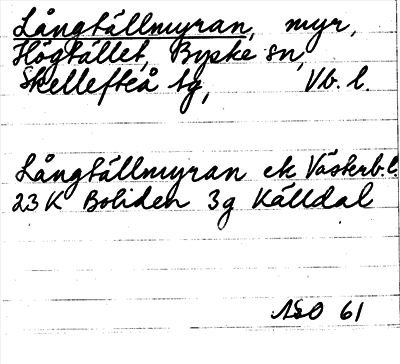 Långtällmyran, myr,
Högtället, Byske sn,
Skellefteå tg, Vb. l.
Långtällmyran ek Västerb.l.
23 K Boliden 3g Källdal
ASO 61